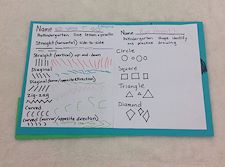 Name
Prekindergarten, line lesson + practice
Straight (horizontal) side-to-side
Straight (vertical) up-and-down
Diagonal
Diagonal (mirror/opposite direction)
Zig-zag
Curved
Curved (mirror/opposite direction)
Name
Prekindergarten shape identify
and practice drawing
Circle
Square
Triangle
Diamond